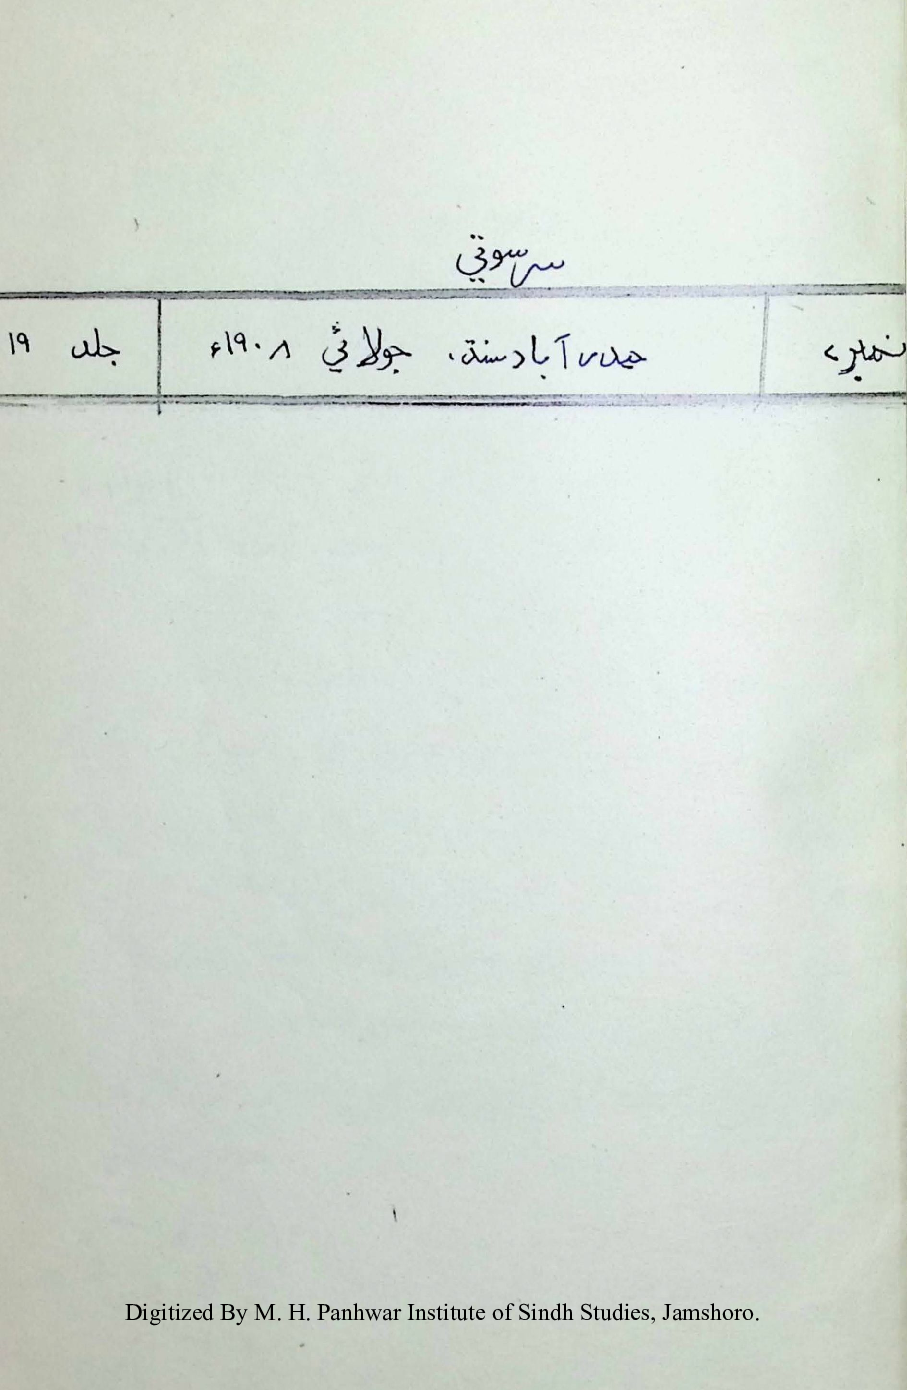 سرسوتي
نمبر ۷ حيدرآباد سنڌ، جولاءِ ۱۹۰۸ء جلد ۱۹
Digitized By M. H. Panhwar Institute of Sindh Studies, Jamshoro.